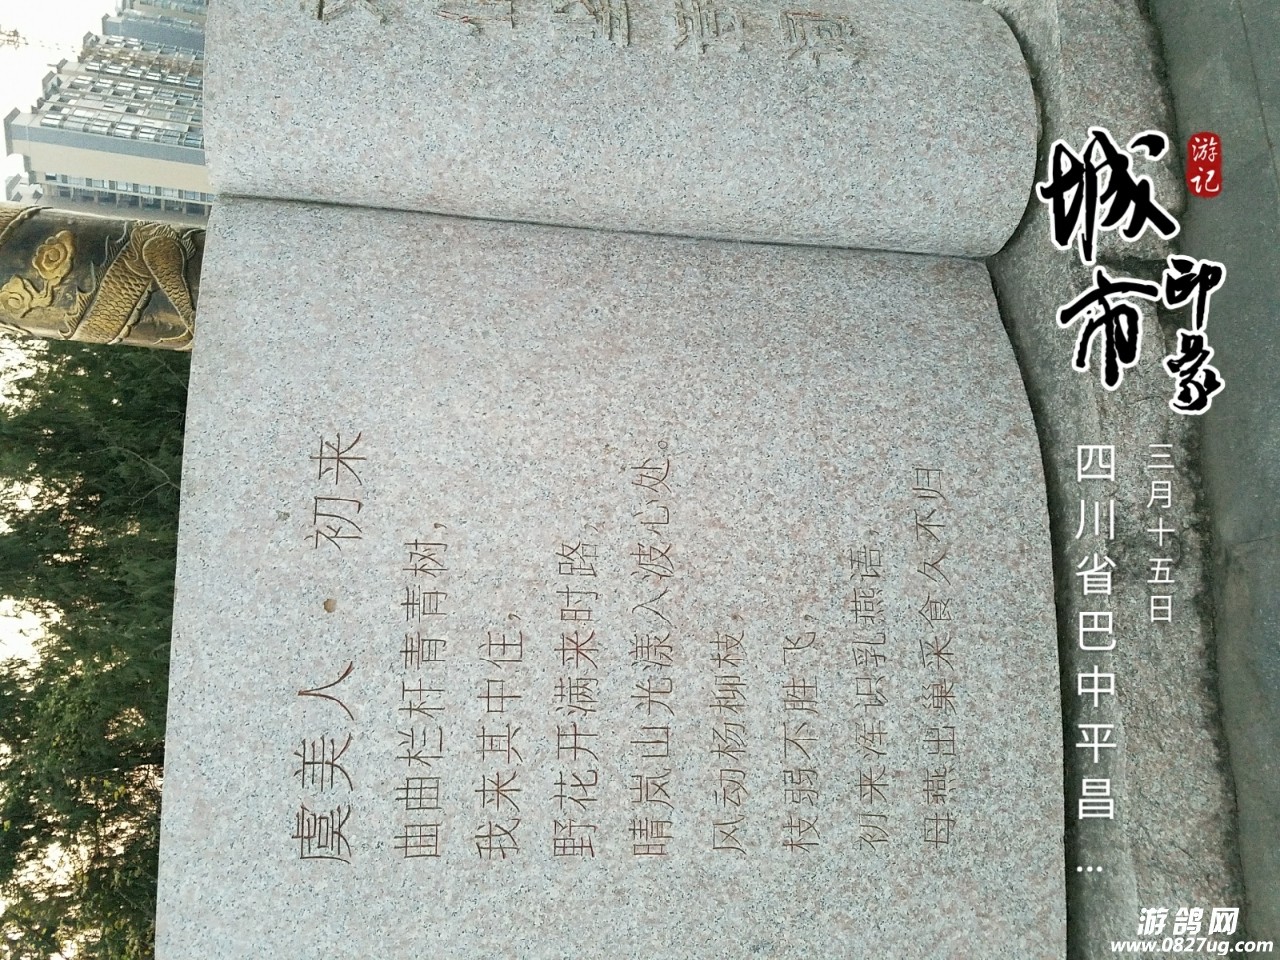 虞美人·初来
曲曲栏杆青青树，
我来其中住，
野花开满来时路，
晴岚山光漾入波心处。
风动杨柳枝，
枝弱不胜飞，
初来浑识乳燕语，
母燕出巢采食久不归
游记
城市
印象
三月十五日
四川省巴中平昌...
游鸽网
www.0827ug.com